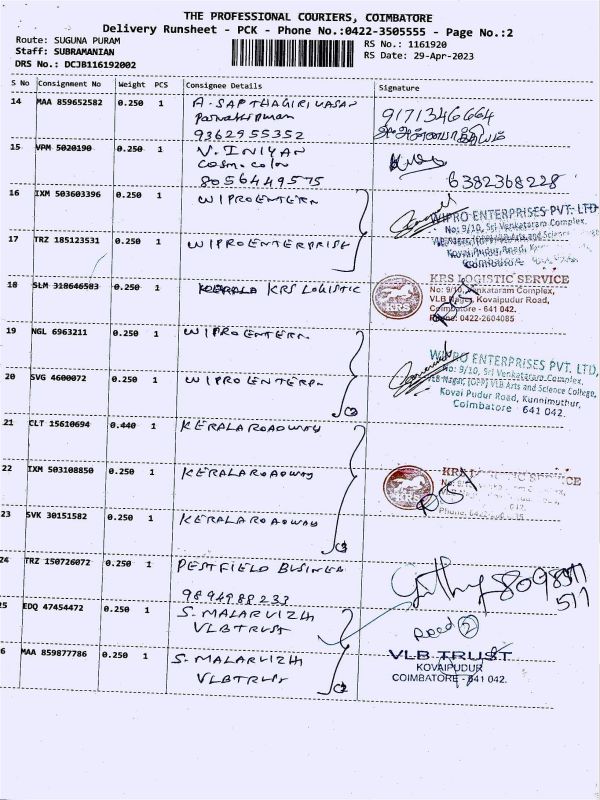 THE PROFESSIONAL COURIERS, COIMBATORE
Delivery Runsheet - PCK - Phone No.:0422-3505555 - Page No.:2
Route: SUGUNA PURAM
Staff: SUBRAMANIAN
DRS No.: DCJB116192002
RS No.: 1161920
RS Date: 29-Apr-2023
S No Consignment No Weight PCS Consignee Details Signature
14 MAA 859652582 0.250 1 A. SAPTHAGIRIVASAN 9171346664
9362955352
15 VPM 5020190 0.250 1 V. INIYAN
COSMO COLOR
8056449575 6382368228
16 IXM 503603396 0.250 1 WIPROENTERN
WIPRO ENTERPRISES PVT. LTD
No: 9/10, Sri Venkataram Complex,
17 TRZ 185123531 0.250 1 WIPROENTERPRISE
VLB Nagar, (OPP) VLB Arts and Science College,
Kovai Pudur Road,
Coimbatore
18 SLM 318646583 0.250 1 KERALA KRS LOGISTIC
KRS LOGISTIC SERVICE
No: 9/10, Venkataram Complex,
VLB Nagar, Kovaipudur Road,
Coimbatore - 641 042.
Phone: 0422-2604085
19 NGL 6963211 0.250 1 WIPROENTERN
WIPRO ENTERPRISES PVT. LTD.
No: 9/10, Sri Venkataram Complex,
20 SVG 4600072 0.250 1 WIPROENTERPN
VLB Nagar, (OPP) VLB Arts and Science College,
Kovai Pudur Road, Kunnimuthur,
Coimbatore 641 042.
21 CLT 15610694 0.440 1 KERALAROADWAY
22 IXM 503108850 0.250 1 KERALAROADWAY
23 SVK 30151582 0.250 1 KERALAROADWAY
24 TRZ 150726072 0.250 1 PESTFIELD BUSINES
9894988233
25 EDQ 47454472 0.250 1 S. MALARVIZHI
VLBTRUST
Recd 2
26 MAA 859877786 0.250 1 S. MALARVIZHI
VLBTRUST
VLB TRUST
KOVAIPUDUR
COIMBATORE - 641 042.